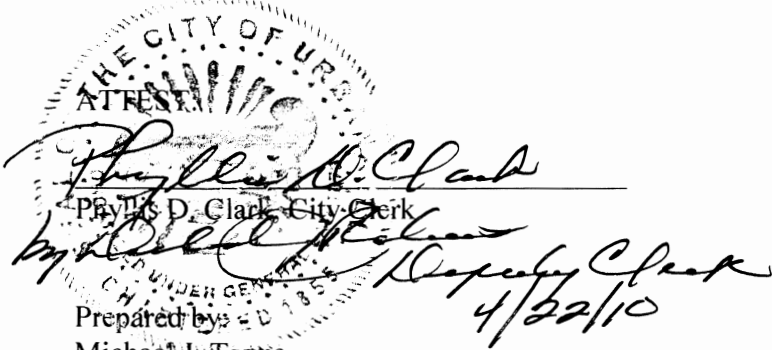 THE CITY OF UR
ATTEST:
Phyllis D. Clark
Phyllis D. Clark, City Clerk
by
Deputy Clerk
4/22/10
UNDER GENERAL
CH D 1855
Prepared by:
Michael J.